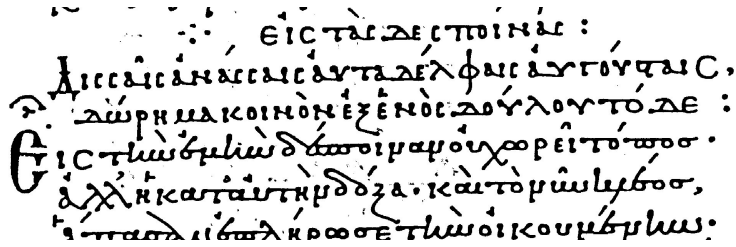 εἰς τὰς δεσποίνας :
Δισσαῖς ἀνάσσαις αὐταδέλφαις αὐγούσταις,
δώρημα κοινὸν ἐξ ἑνὸς δούλου τόδε :
Εἰς τὴν χωρεῖ τόπος ·
ἀλλ' ἡ κατ' αὐτὴν δόξα · καὶ τὸ
ἅπασαν ἐπλήρωσε τὴν οἰκουμένην ·